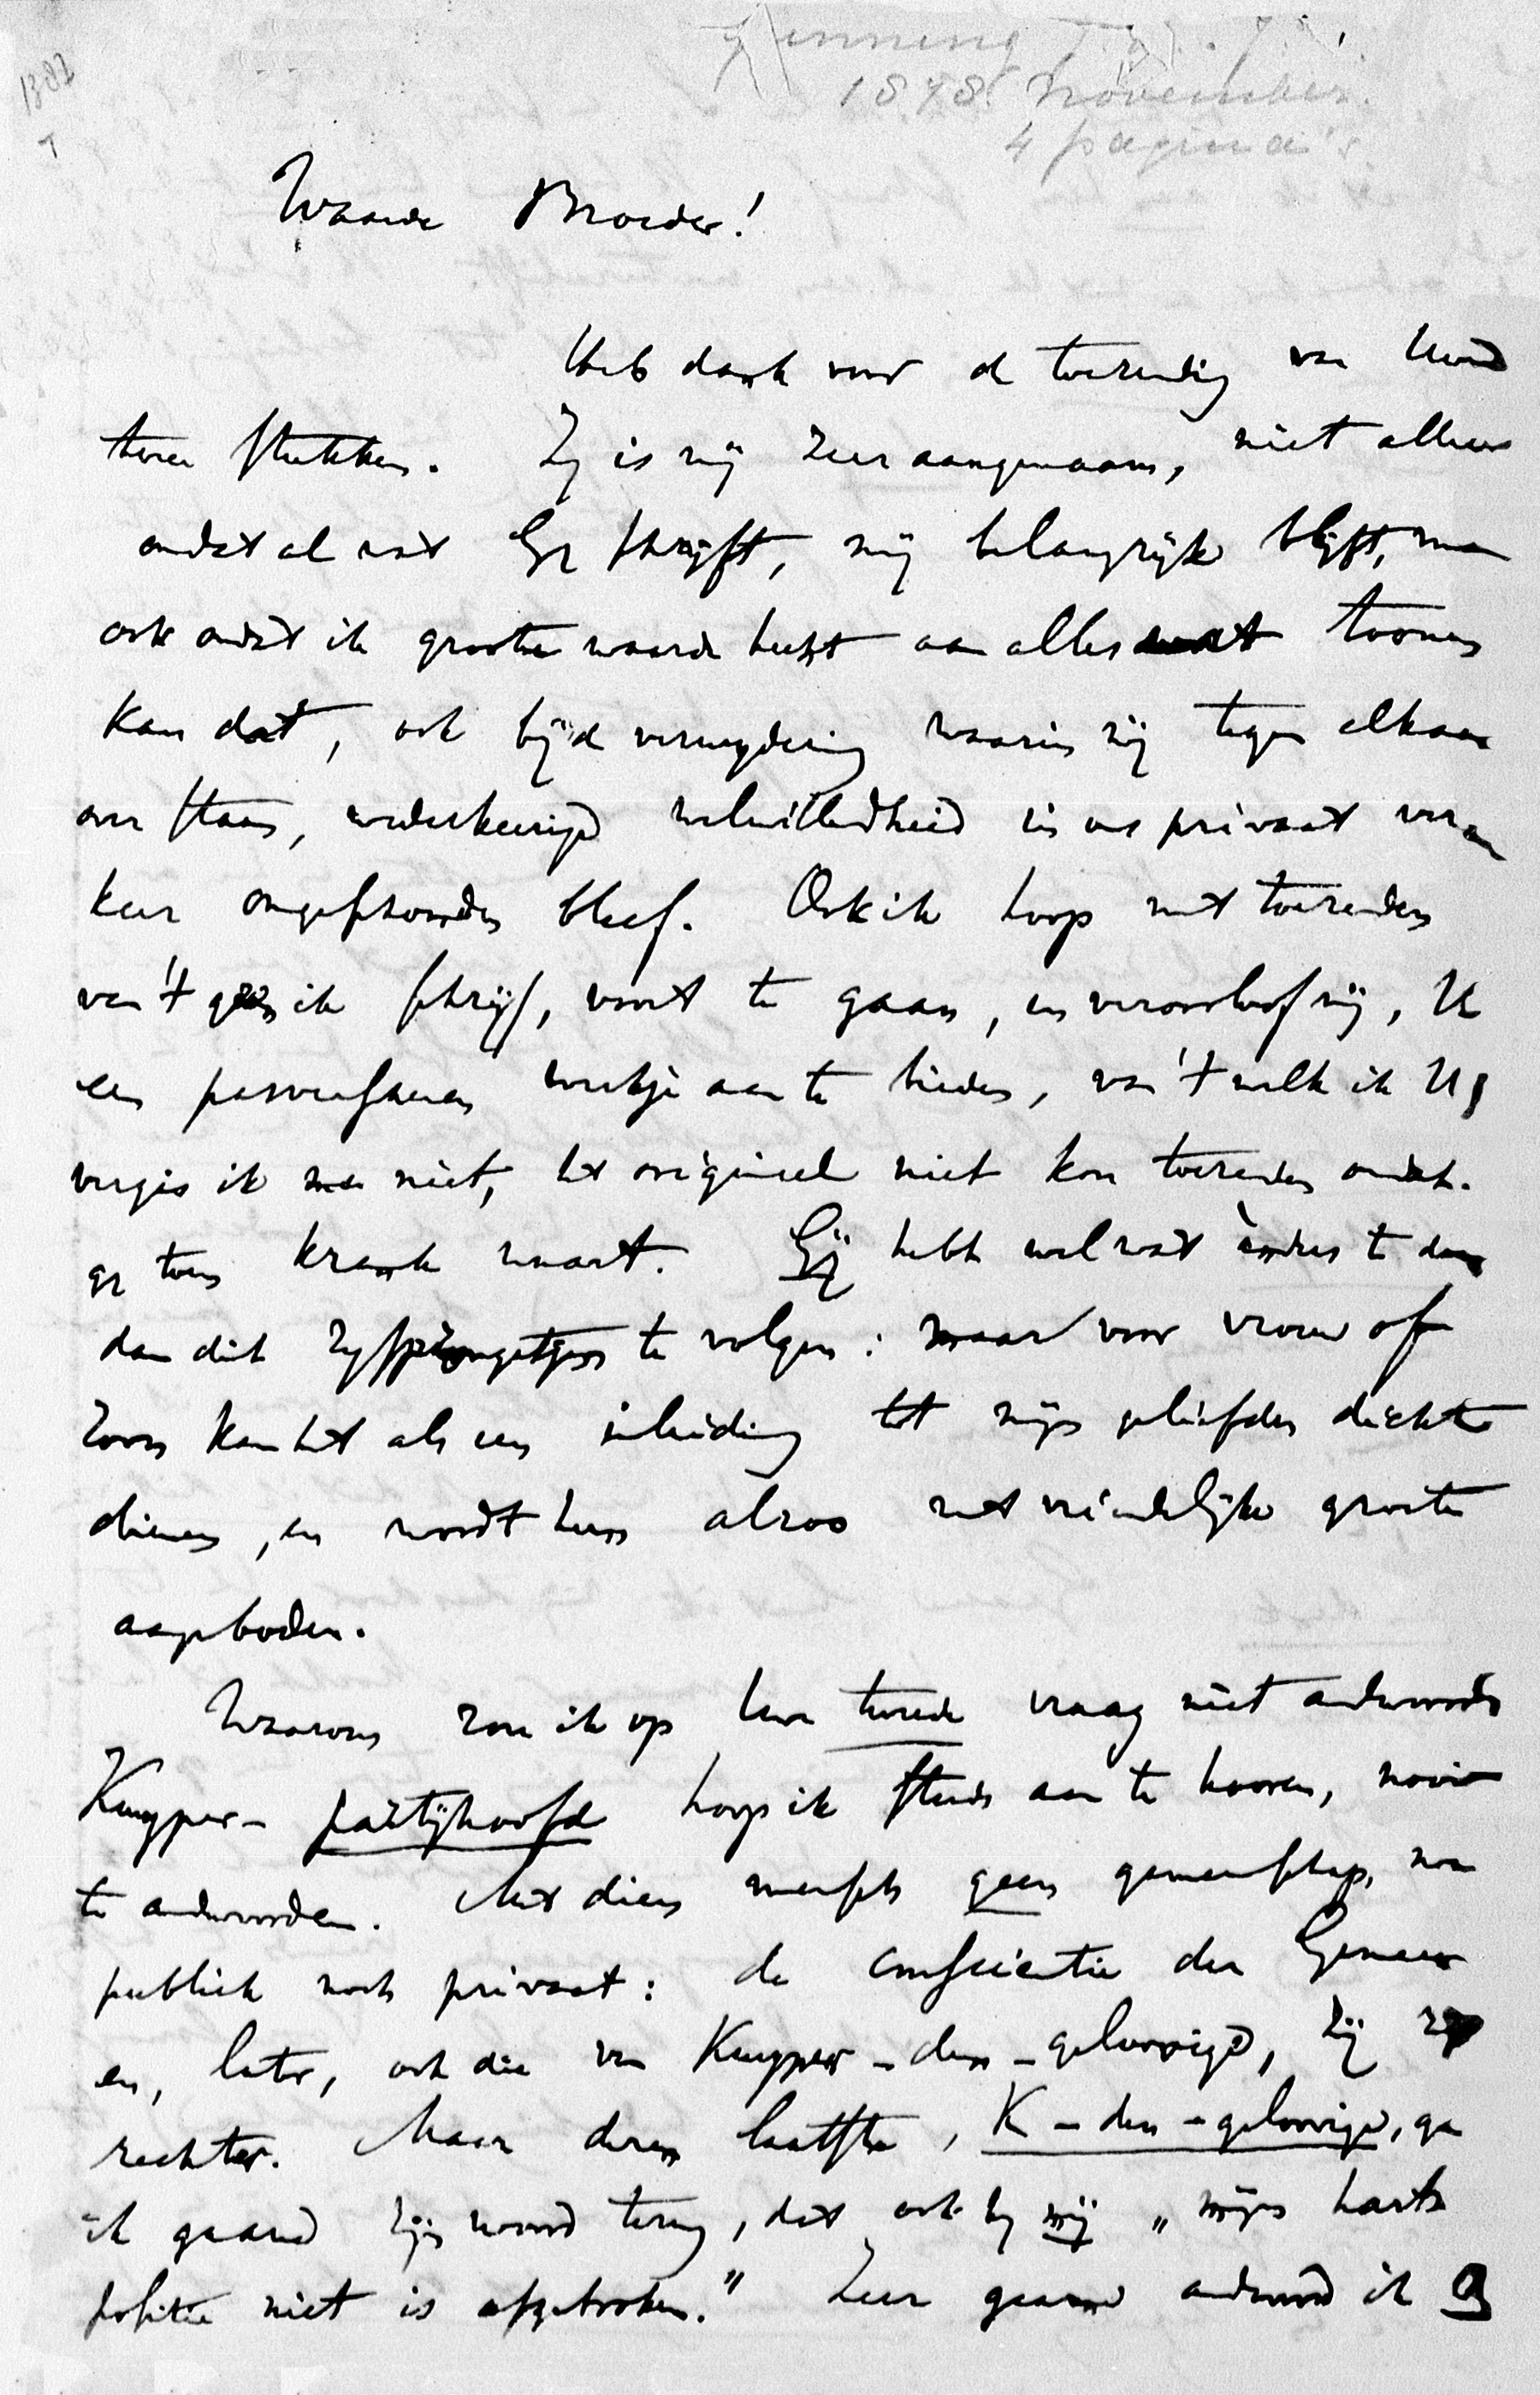 1382
Gunning J.H. Jr.
1878. November.
4 pagina's.
Waarde Broeder!
Heb dank voor de toezending van Uwe
twee stukken. Zij is mij zeer aangenaam, niet alleen
omdat al wat Gij schrijft, mij belangrijk blijft, maar
ook omdat ik groote waarde hecht aan alles wat toonen
kan dat, ook bij de verwijdering waarin wij tegen elkaar
over staan, wederkeerige welwillendheid in ons privaat ver-
keer ongeschonden bleef. Ook ik hoop met toezenden
van 't geen ik schrijf, voort te gaan, en veroorloof mij, U
een pasverschenen werkje aan te bieden, van 't welk ik U,
vergis ik me niet, het origineel niet kon toezenden omdat
ge toen krank waart. Gij hebt wel wat anders te doen
dan dit te volgen: maar voor vrouw of
zoon kan het als een inleiding tot mijn geliefden dichter
dienen, en wordt hun alzoo met vriendelijke groete
aangeboden.
Waarom zou ik op Uwe tweede vraag niet andwoorden
Kuyper-partijhoofd hoop ik steeds aan te hooren, nooit
te andwoorden. Met dien mensch geen gemeenschap, noch
publiek noch privaat: de conscientie der Gemeente
en, later, ook die van Kuyper-den-geloovige, zij
rechter. Maar dezen laatste, K-den-geloovige, geef
ik gaarne zijn woord terug, dat ook bij mij "mijns harten
positie niet is afgebroken." Zeer gaarne andwoord ik